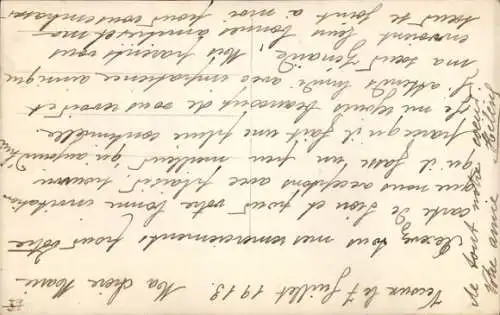 Vesoux le 7 Juillet 1913. Ma chère Marie-
Recevez tous mes remerciements pour votre
carte de Dion et pour votre bonne invitation
que nous acceptons avec plaisir pourvu
qu'il fasse un peu meilleur qu'aujourd'hui
parce qu'il fait une pluie continuelle.
Je me réjouis beaucoup de vous revoir et
j'attends lundi avec impatience ainsi que
ma sœur Germaine. Mes parents vous
envoient leurs bonnes amitiés et ma
sœur se joint à moi pour vous embrasser
de tout notre cœur.
Votre amie